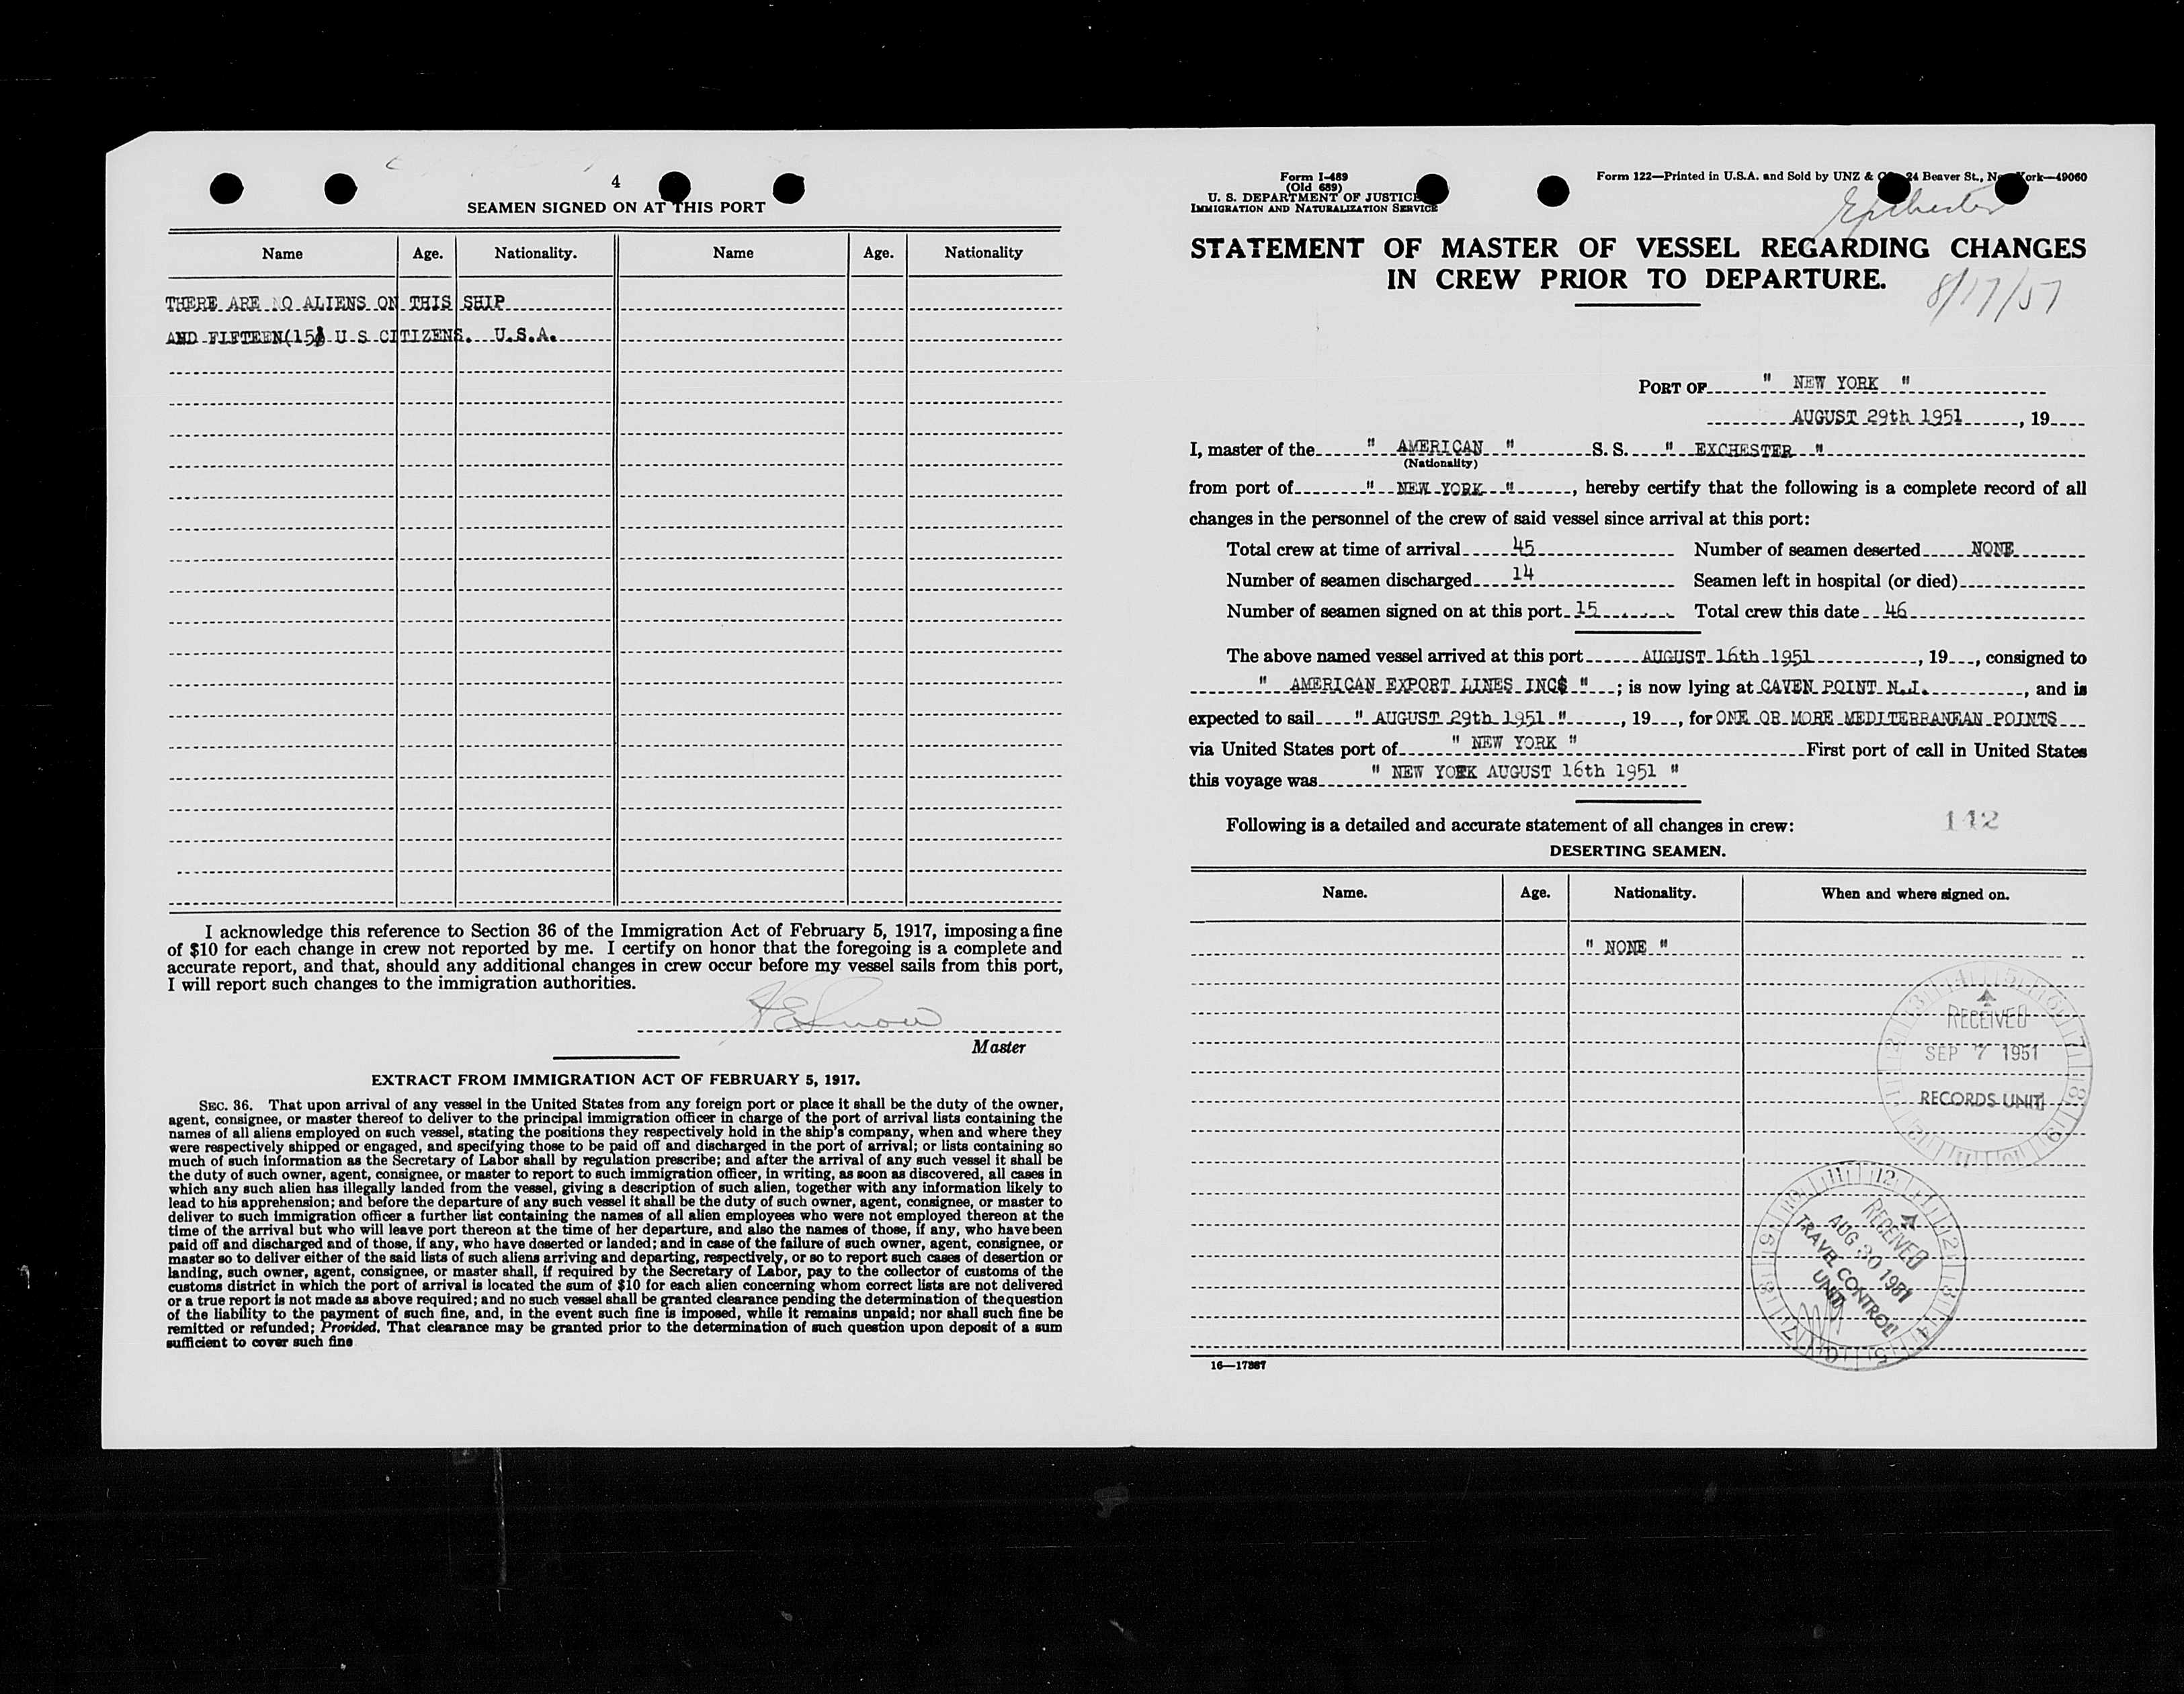 4
SEAMEN SIGNED ON AT THIS PORT
Name Age. Nationality. Name Age. Nationality
THERE ARE NO ALIENS ON THIS SHIP
AND FIFTEEN(15) U S CITIZENS. U.S.A.
I acknowledge this reference to Section 36 of the Immigration Act of February 5, 1917, imposing a fine
of $10 for each change in crew not reported by me. I certify on honor that the foregoing is a complete and
accurate report, and that, should any additional changes in crew occur before my vessel sails from this port,
I will report such changes to the immigration authorities.
Master
EXTRACT FROM IMMIGRATION ACT OF FEBRUARY 5, 1917.
SEC. 36. That upon arrival of any vessel in the United States from any foreign port or place it shall be the duty of the owner,
agent, consignee, or master thereof to deliver to the principal immigration officer in charge of the port of arrival lists containing the
names of all aliens employed on such vessel, stating the positions they respectively hold in the ship's company, when and where they
were respectively shipped or engaged, and specifying those to be paid off and discharged in the port of arrival; or lists containing so
much of such information as the Secretary of Labor shall by regulation prescribe; and after the arrival of any such vessel it shall be
the duty of such owner, agent, consignee, or master to report to such immigration officer, in writing, as soon as discovered, all cases in
which any such alien has illegally landed from the vessel, giving a description of such alien, together with any information likely to
lead to his apprehension; and before the departure of any such vessel it shall be the duty of such owner, agent, consignee, or master to
deliver to such immigration officer a further list containing the names of all alien employees who were not employed thereon at the
time of the arrival but who will leave port thereon at the time of her departure, and also the names of those, if any, who have been
paid off and discharged and of those, if any, who have deserted or landed; and in case of the failure of such owner, agent, consignee, or
master so to deliver either of the said lists of such aliens arriving and departing, respectively, or so to report such cases of desertion or
landing, such owner, agent, consignee, or master shall, if required by the Secretary of Labor, pay to the collector of customs of the
customs district in which the port of arrival is located the sum of $10 for each alien concerning whom correct lists are not delivered
or a true report is not made as above required; and no such vessel shall be granted clearance pending the determination of the question
of the liability to the payment of such fine, and, in the event such fine is imposed, while it remains unpaid; nor shall such fine be
remitted or refunded; Provided, That clearance may be granted prior to the determination of such question upon deposit of a sum
sufficient to cover such fine
Form I-489
(Old 689)
U. S. DEPARTMENT OF JUSTICE
IMMIGRATION AND NATURALIZATION SERVICE
Form 122—Printed in U.S.A. and Sold by UNZ & 24 Beaver St., 49060
STATEMENT OF MASTER OF VESSEL REGARDING CHANGES
IN CREW PRIOR TO DEPARTURE.
8/17/51
PORT OF " NEW YORK "
AUGUST 29th 1951, 19
I, master of the " AMERICAN " S. S. " EXCHESTER "
(Nationality)
from port of " NEW YORK ", hereby certify that the following is a complete record of all
changes in the personnel of the crew of said vessel since arrival at this port:
Total crew at time of arrival 45 Number of seamen deserted NONE
Number of seamen discharged 14 Seamen left in hospital (or died)
Number of seamen signed on at this port 15 Total crew this date 46
The above named vessel arrived at this port AUGUST 16th 1951, 19, consigned to
" AMERICAN EXPORT LINES INC$ "; is now lying at CAVEN POINT N.J., and is
expected to sail " AUGUST 29th 1951 ", 19, for ONE OR MORE MEDITERRANEAN POINTS
via United States port of " NEW YORK " First port of call in United States
this voyage was " NEW YORK AUGUST 16th 1951 "
Following is a detailed and accurate statement of all changes in crew:
142
DESERTING SEAMEN.
Name. Age. Nationality. When and where signed on.
" NONE "
RECEIVED
SEP 7 1951
RECORDS UNIT
RECEIVED
AUG 30 1951
TRAVEL CONTROL
UNIT
16—17867